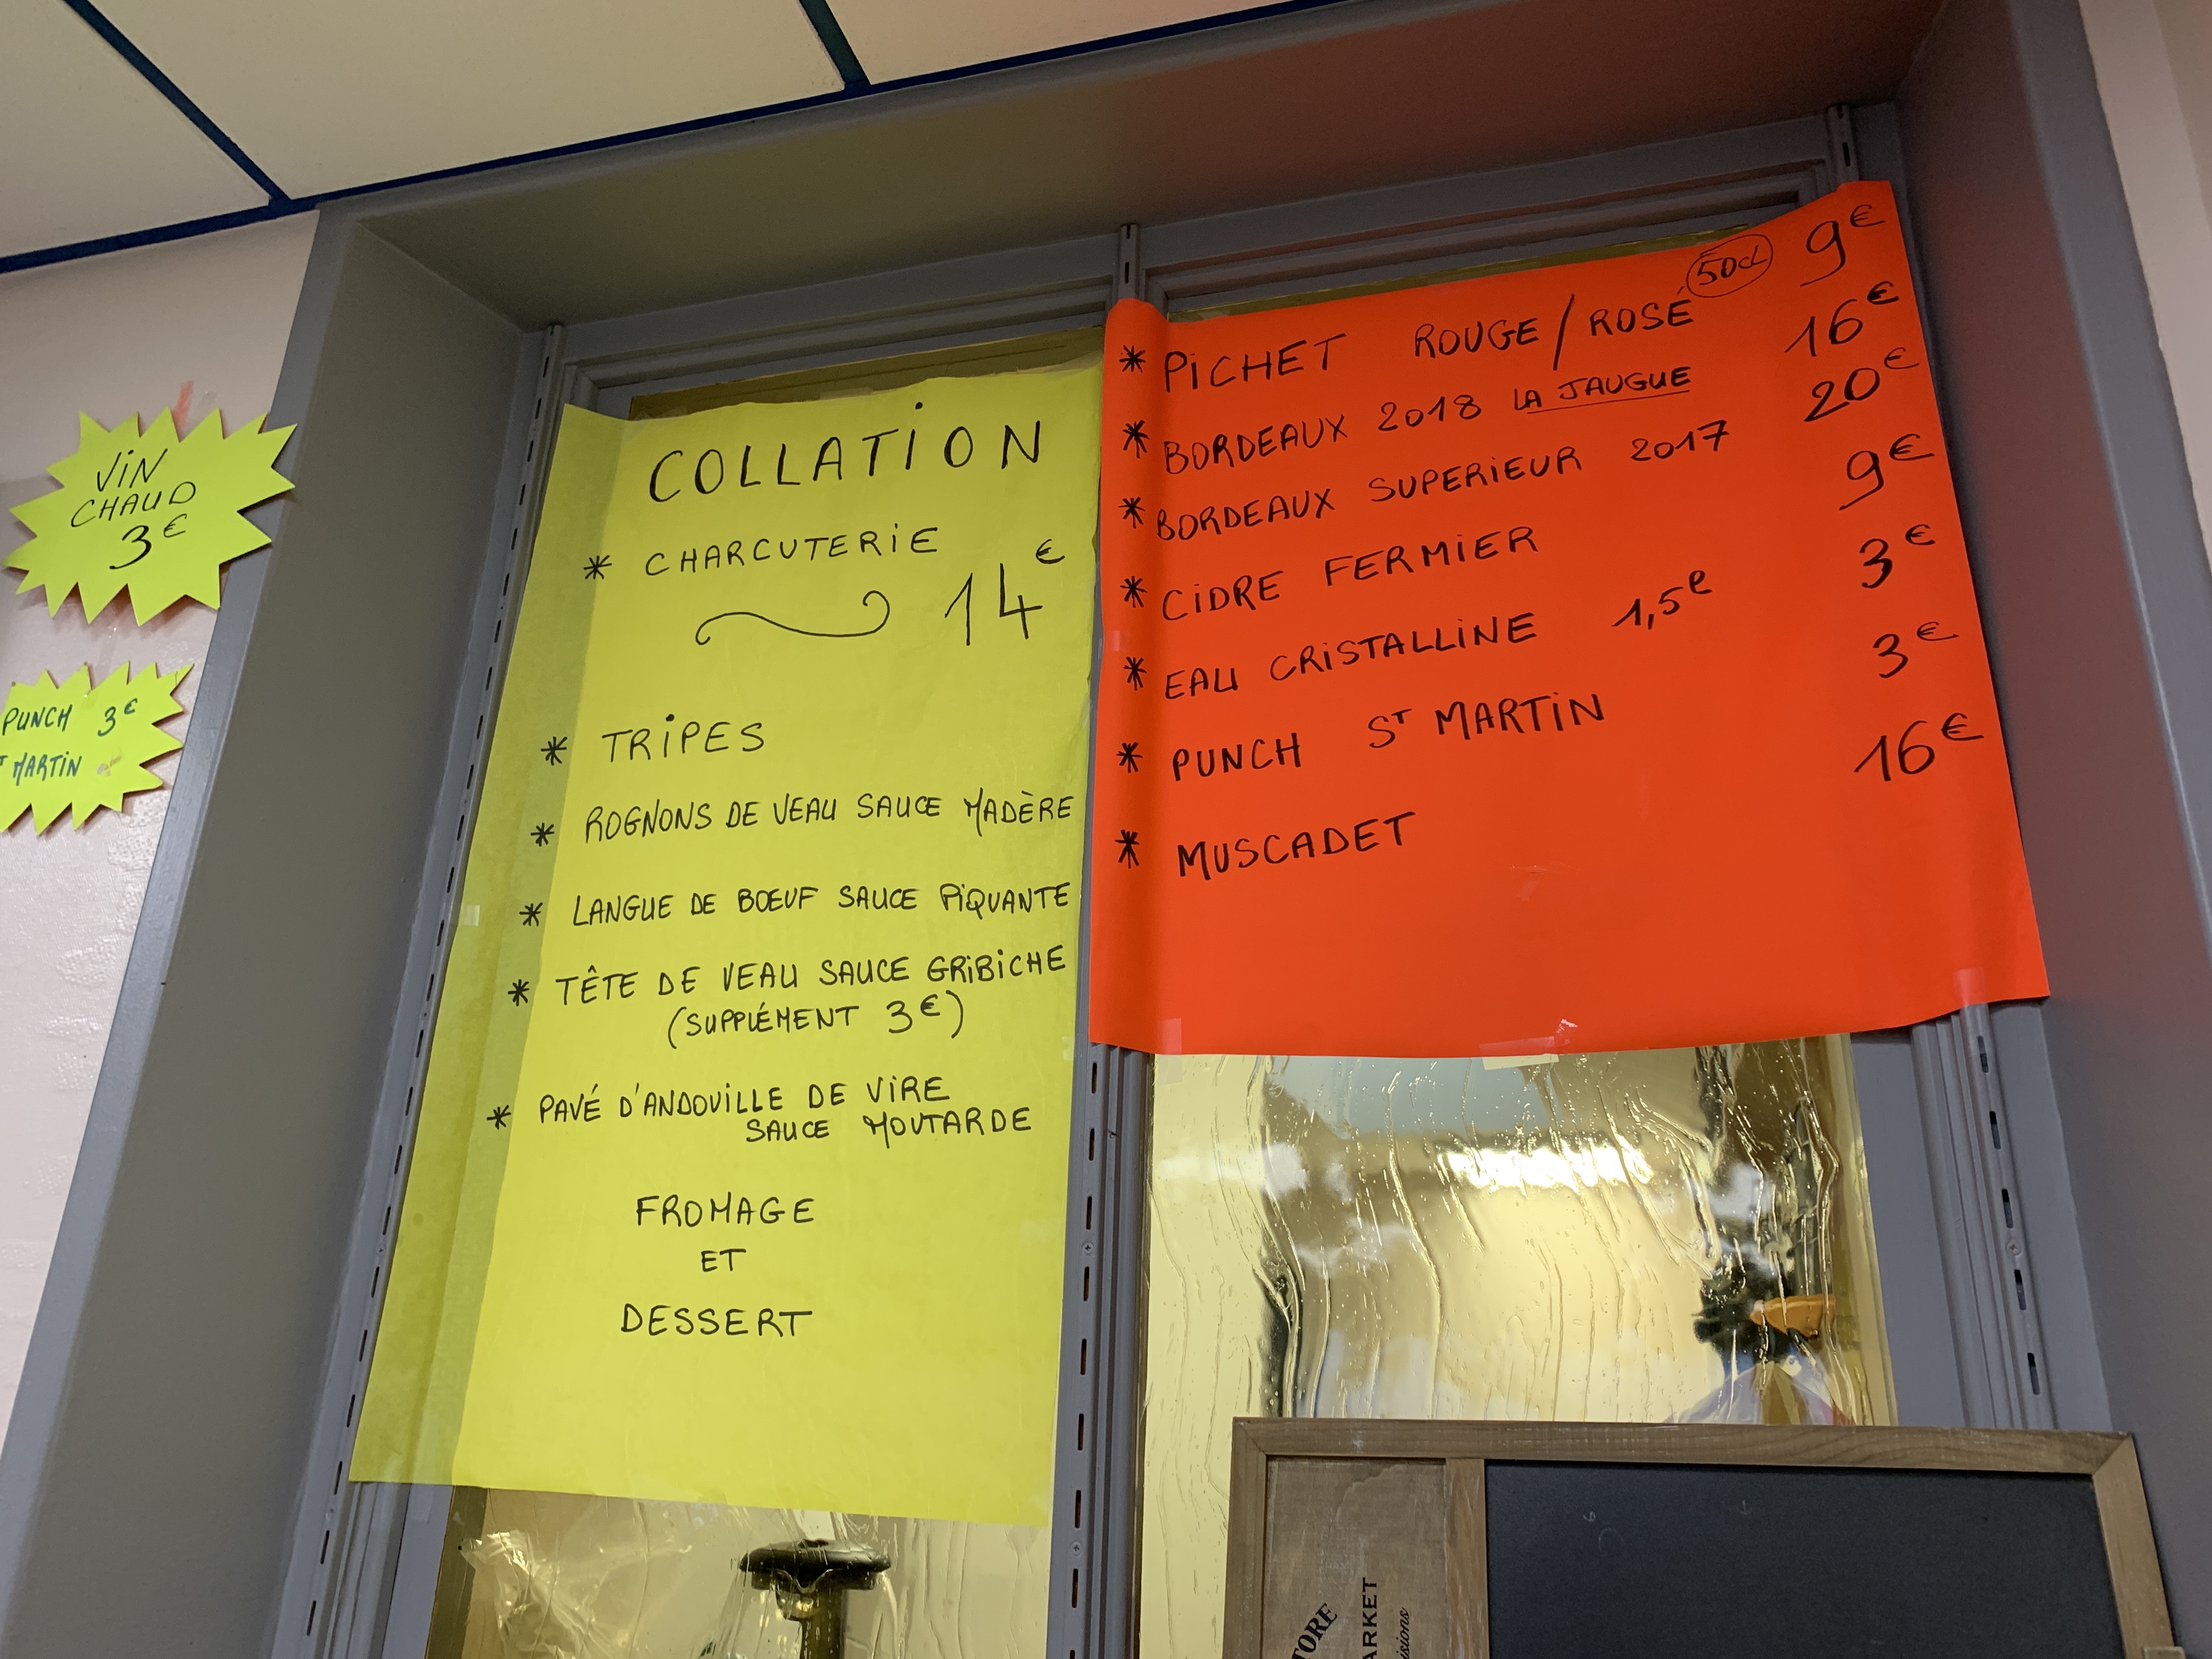 VIN
CHAUD
3€
PUNCH 3€
MARTIN
COLLATION
* CHARCUTERIE
14€
* TRIPES
* ROGNONS DE VEAU SAUCE MADÈRE
* LANGUE DE BŒUF SAUCE PIQUANTE
* TÊTE DE VEAU SAUCE GRIBICHE
(SUPPLÉMENT 3€)
* PAVÉ D'ANDOUILLE DE VIRE
SAUCE MOUTARDE
FROMAGE
ET
DESSERT
* PICHET ROUGE/ROSÉ 50cl 9€
* BORDEAUX 2018 LA JAUGUE 16€
* BORDEAUX SUPERIEUR 2017 20€
* CIDRE FERMIER 9€
* EAU CRISTALLINE 1,5l 3€
* PUNCH ST MARTIN 3€
* MUSCADET 16€